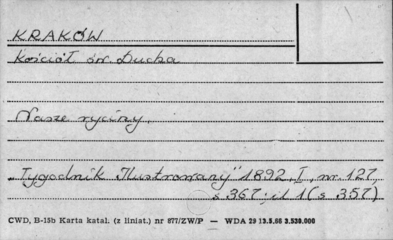 KRAKÓW
Kościół św. Ducha
Nasze ryciny.
„Tygodnik Ilustrowany" 1892, I, nr. 127,
s 367: il 1 (s 357)
CWD, B-15b Karta katal. (z liniat.) nr 877/ZW/P — WDA 29 13.5.66 3.530.000